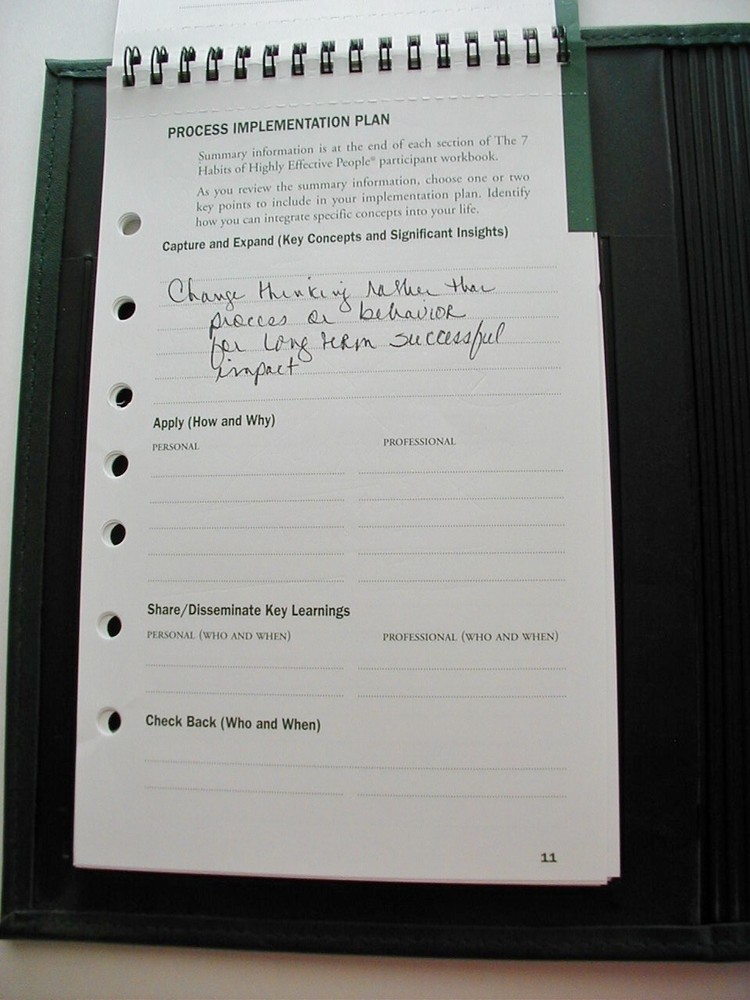 PROCESS IMPLEMENTATION PLAN
Summary information is at the end of each section of The 7
Habits of Highly Effective People® participant workbook.
As you review the summary information, choose one or two
key points to include in your implementation plan. Identify
how you can integrate specific concepts into your life.
Capture and Expand (Key Concepts and Significant Insights)
Change thinking rather than
proccess or behavior
for long term successful
impact
Apply (How and Why)
PERSONAL PROFESSIONAL
Share/Disseminate Key Learnings
PERSONAL (WHO AND WHEN) PROFESSIONAL (WHO AND WHEN)
Check Back (Who and When)
11